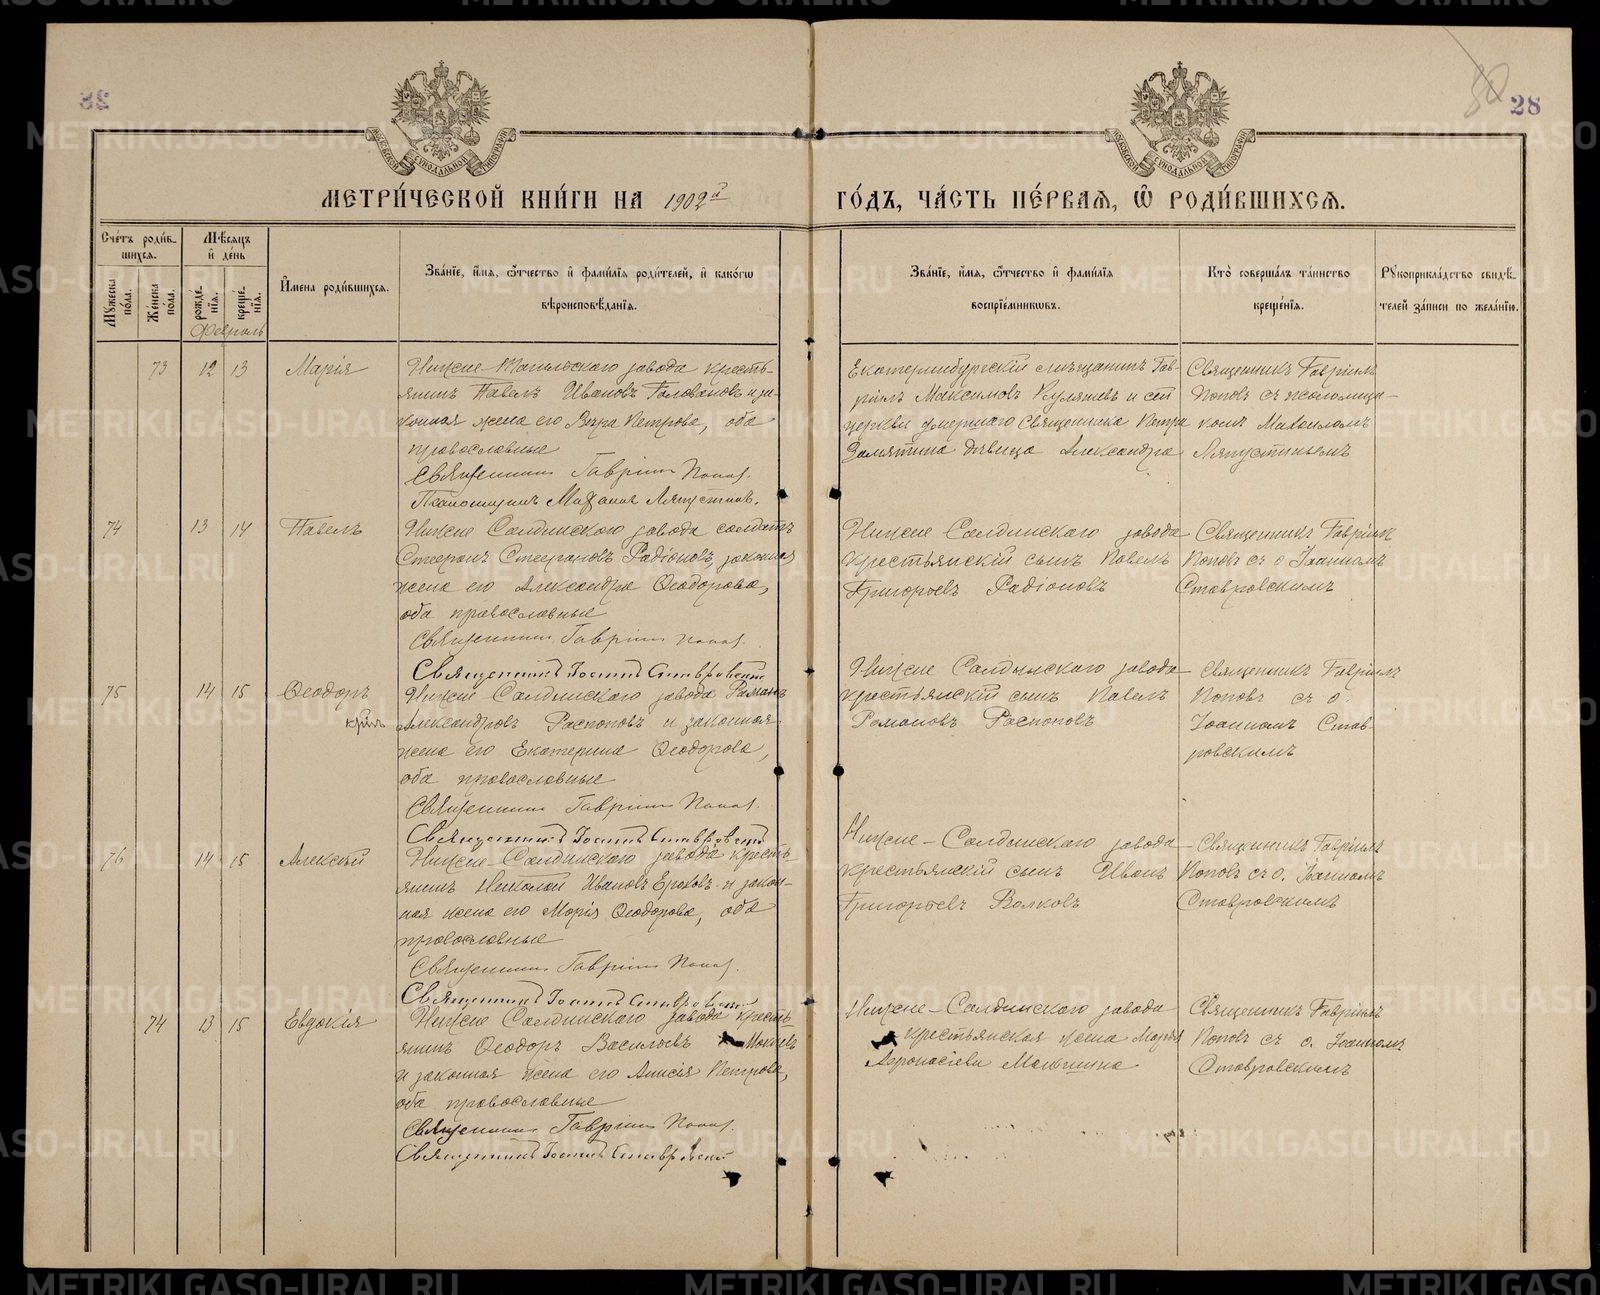 28
МЕТРИ́ЧЕСКОЙ КНИ́ГИ НА 1902й ГО́ДЪ, ЧА́СТЬ ПЕ́РВАЯ, Ѿ РОДИ́ВШИХСЯ.
Сче́тъ роди́вшихся.
Му́жеска по́ла.
Же́нска по́ла.
Мѣ́сяцъ и҆ де́нь
рожде́нїя.
креще́нїя.
Февраль
И҆мена роди́вшихся.
Зва́нїе, и҆́мя, ѻ҆́тчество и҆ фами́лїя роди́телей, и҆ како́гѡ
вѣроисповѣ́данїя.
Зва́нїе, и҆́мя, ѻ҆́тчество и҆ фами́лїя
воспрїе́мниковъ.
Кто̀ соверша́лъ та́инство
креще́нїя.
Рꙋкоприкла́дство свидѣ́-
телей за́писи по жела́нїю.
73 12 13 Марія
Нижне Тагильского завода кресть-
янинъ Павелъ Ивановъ Головановъ и за-
конная жена его Вѣра Петрова, оба
православные
Священникъ Гавріилъ Поповъ.
Псаломщикъ Михаилъ Ляпустинъ.
Екатеринбургскій мѣщанинъ Гав-
ріилъ Максимовъ Куляшевъ и
церкви умершаго священника Петра
Замятина дѣвица Александра
Священникъ Гавріилъ
Поповъ съ псаломщи-
комъ Михаиломъ
Ляпустинымъ
74 13 14 Павелъ
Нижне Салдинского завода солдатъ
Стефанъ Стефановъ Радіоновъ, законная
жена его Александра Ѳеодорова,
оба православные
Священникъ Гавріилъ Поповъ.
Священникъ Іоаннъ Ставровскій
Нижне Салдинского завода
крестьянскій сынъ Павелъ
Григорьевъ Радіоновъ
Священникъ Гавріилъ
Поповъ съ о Іоанномъ
Ставровскимъ
75 14 15 Ѳеодоръ
Нижне Салдинского завода Романъ
Александровъ Распоповъ и законная
жена его Екатерина Ѳеодорова,
оба православные
Священникъ Гавріилъ Поповъ.
Священникъ Іоаннъ Ставровскій
Нижне Салдинского завода
крестьянскій сынъ Павелъ
Романовъ Распоповъ
Священникъ Гавріилъ
Поповъ съ о.
Іоанномъ Став-
ровскимъ
76 14 15 Алексѣй
Нижне-Салдинского завода кресть-
янинъ Николай Ивановъ Ероховъ и закон-
ная жена его Марія Ѳеодорова, оба
православные
Священникъ Гавріилъ Поповъ.
Священникъ Іоаннъ Ставровскій
Нижне-Салдинского завода
крестьянскій сынъ Иванъ
Григорьевъ Волковъ
Священникъ Гавріилъ
Поповъ съ о. Іоанномъ
Ставровскимъ
74 13 15 Евдокія
Нижне Салдинского завода кресть-
янинъ Ѳеодоръ Васильевъ
и законная жена его Анисія Петрова,
оба православные
Священникъ Гавріилъ Поповъ.
Священникъ Іоаннъ Ставровскій
Нижне-Салдинского завода
крестьянская жена Марья
Афонасіева Маньшина
Священникъ Гавріилъ
Поповъ съ о. Іоанномъ
Ставровскимъ
METRIKI.GASO-URAL.RU